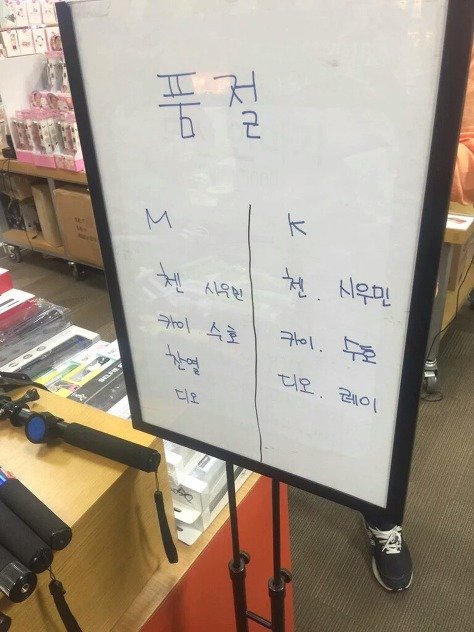 품절
M
첸 시우민
카이 수호
찬열
디오
K
첸. 시우민
카이. 수호
디오. 레이